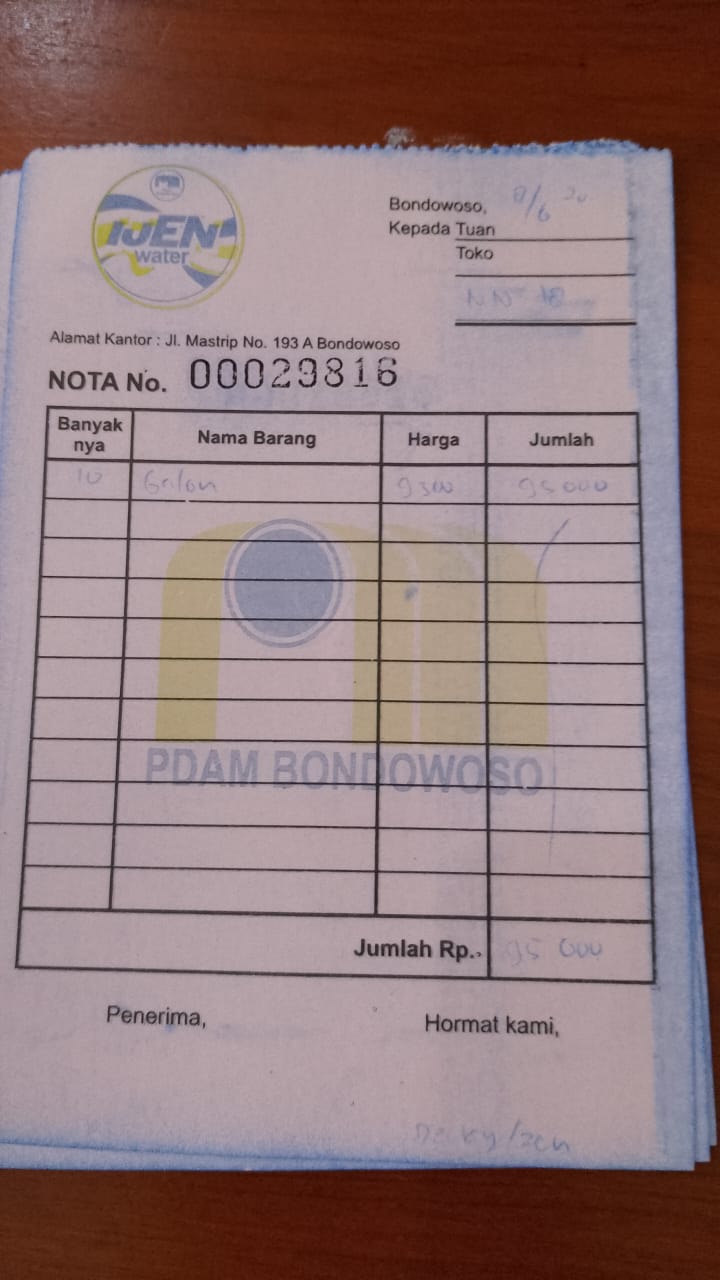 IJEN
water
Bondowoso, 8/6 20
Kepada Tuan
Toko
Alamat Kantor : Jl. Mastrip No. 193 A Bondowoso
NOTA No. 00029816
Banyak nya Nama Barang Harga Jumlah
10 Galon 9500 95 000
PDAM BONDOWOSO
Jumlah Rp. 95 000
Penerima, Hormat kami,